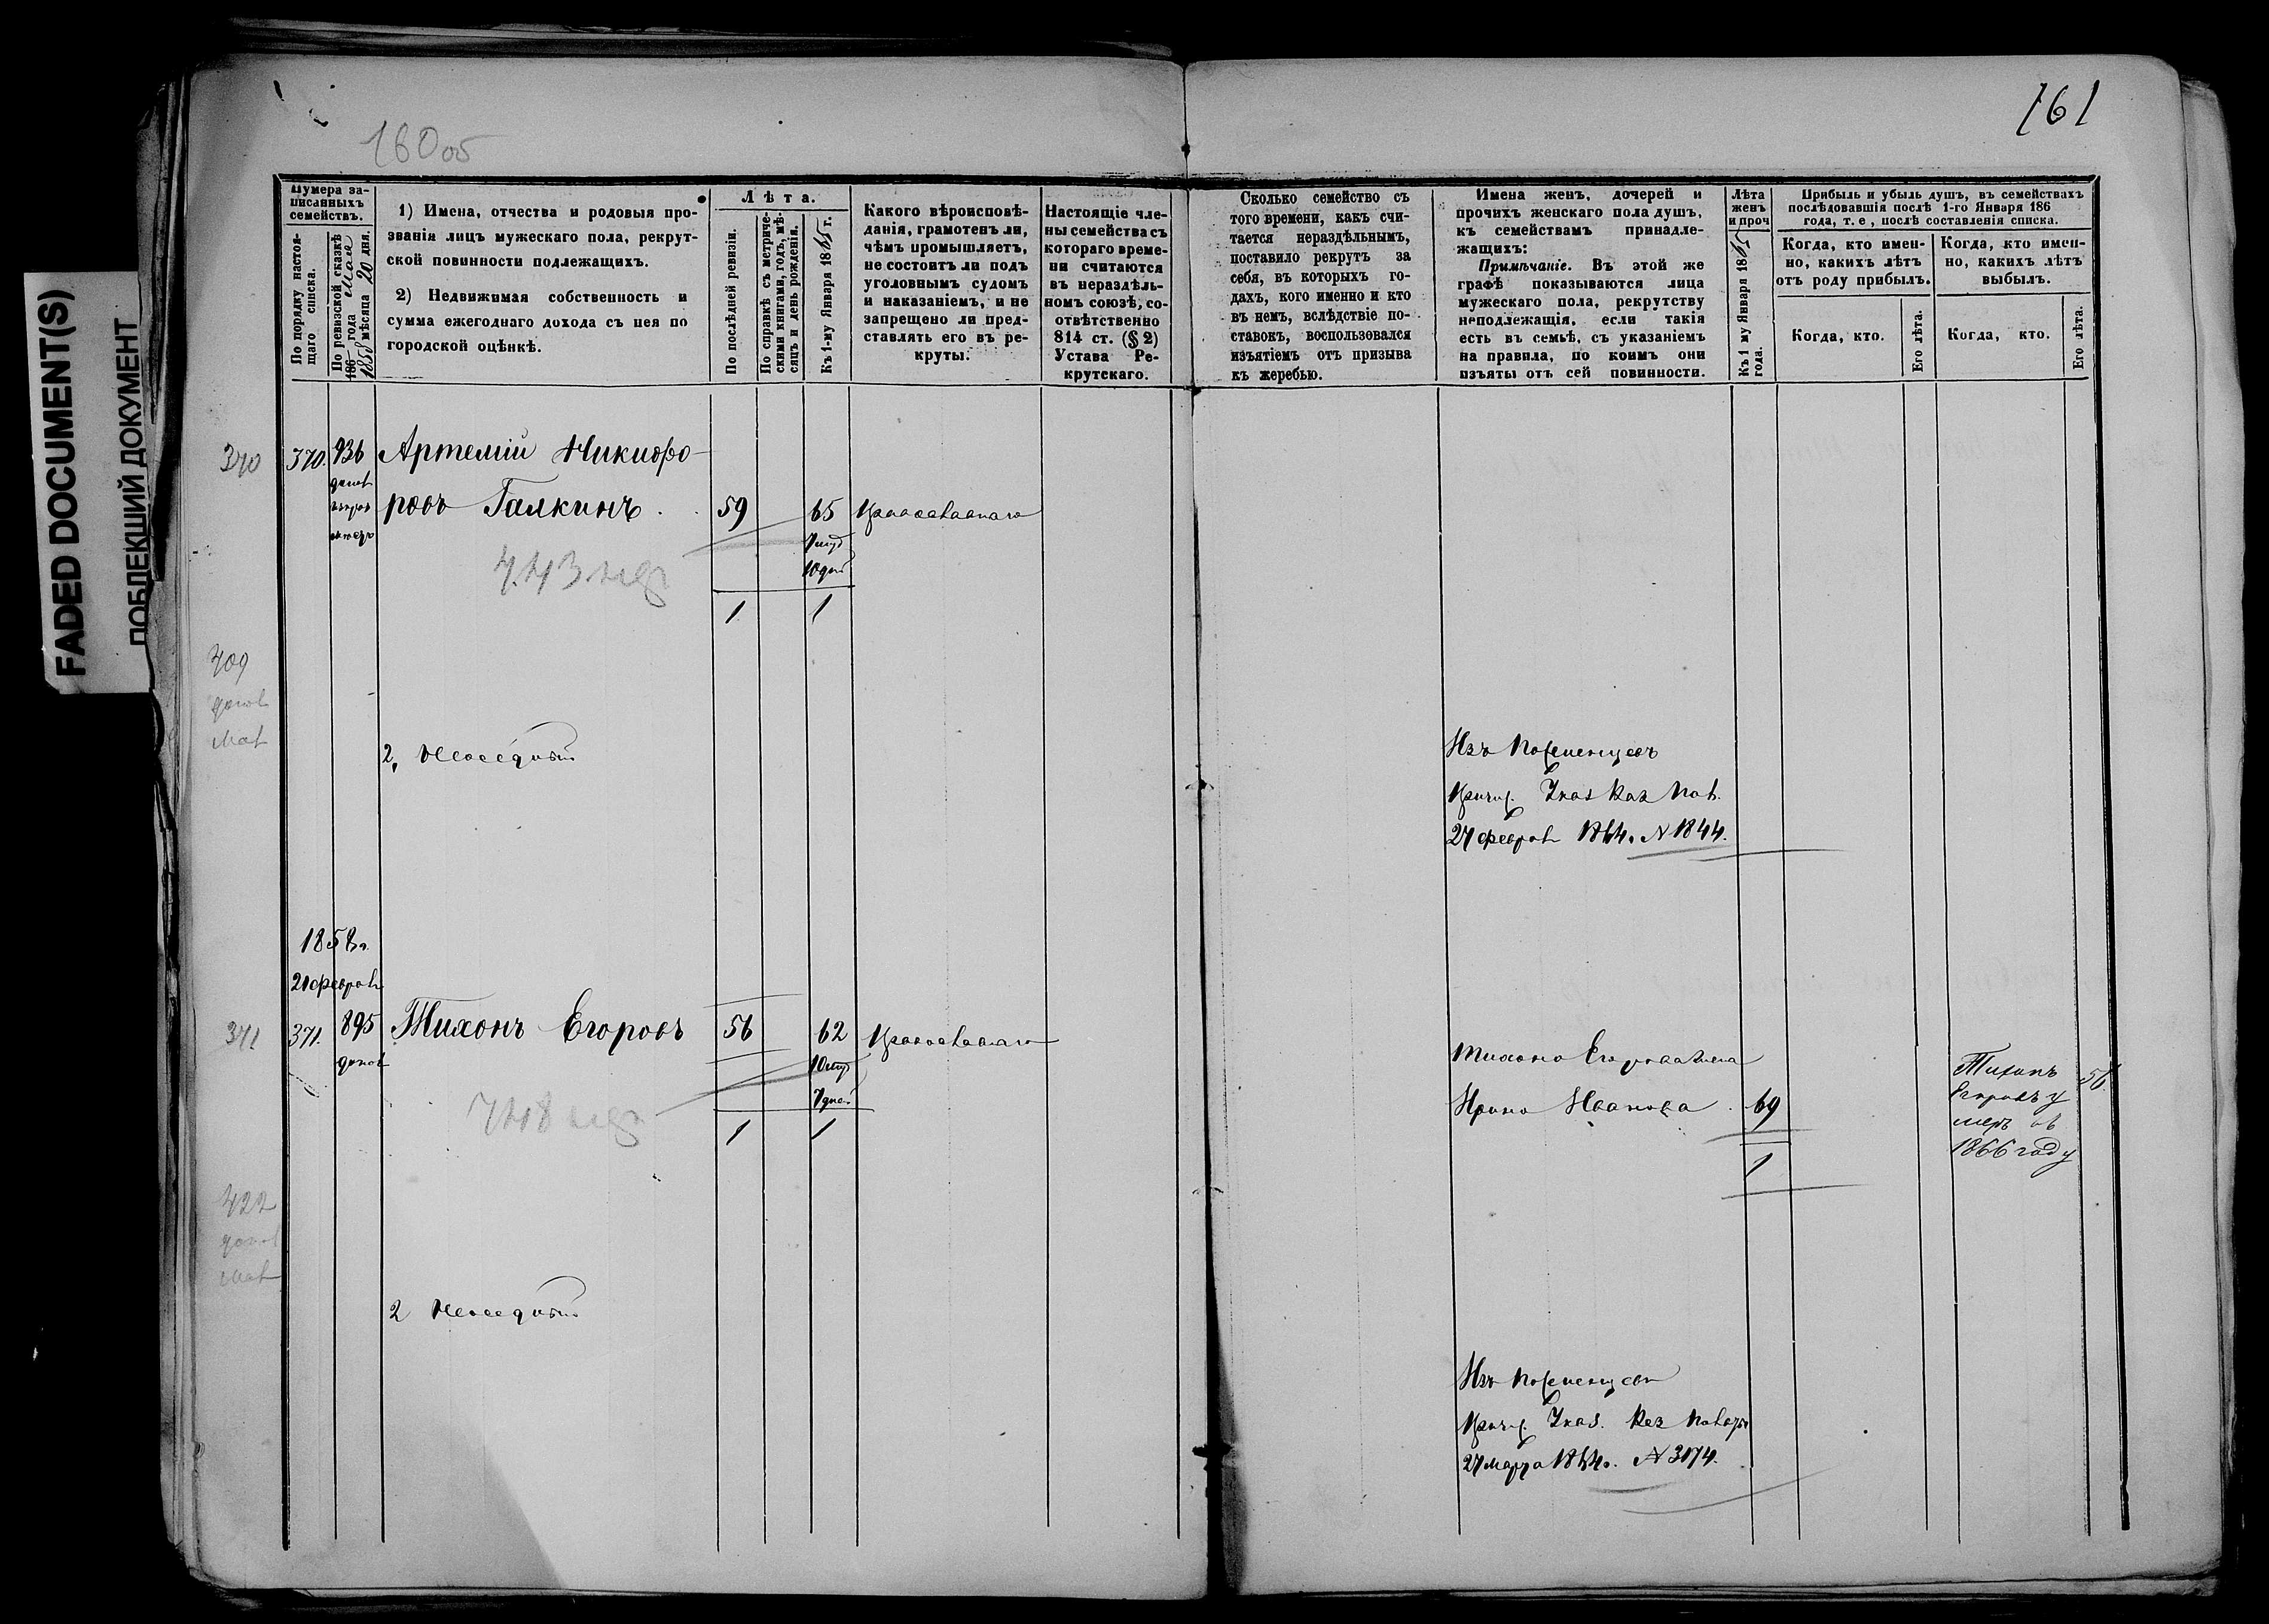 FADED DOCUMENT(S)
ПОБЛЕКШИЙ ДОКУМЕНТ
160 об
161
Нумера за-
писанныхъ
семействъ.
По порядку настоя-
щаго списка.
По ревизской сказкѣ
186 года мая
1858 мѣсяца 20 дня.
1) Имена, отчества и родовыя про-
званія лицъ мужескаго пола, рекрут-
ской повинности подлежащихъ.
2) Недвижимая собственность и
сумма ежегоднаго дохода съ нея по
городской оцѣнкѣ.
Лѣта.
По послѣдней ревизіи.
По справкѣ съ метриче-
скими книгами, годъ, мѣ-
сяцъ и день рожденія.
Къ 1-му Января 1865 г.
Какого вѣроисповѣ-
данія, грамотенъ ли,
чѣмъ промышляетъ,
не состоитъ ли подъ
уголовнымъ судомъ
и наказаніемъ, и не
запрещено ли пред-
ставлять его въ ре-
круты.
Настоящіе чле-
ны семейства съ
котораго време-
ни считаются
въ нераздѣль-
номъ союзѣ, со-
отвѣтственно
814 ст. (§ 2)
Устава Ре-
крутскаго.
Сколько семейство съ
того времени, какъ счи-
тается нераздѣльнымъ,
поставило рекрутъ за
себя, въ которыхъ го-
дахъ, кого именно и кто
въ немъ, вслѣдствіе по-
ставокъ, воспользовался
изъятіемъ отъ призыва
къ жеребью.
Имена женъ, дочерей и
прочихъ женскаго пола душъ,
къ семействамъ принадле-
жащихъ:
Примѣчаніе. Въ этой же
графѣ показываются лица
мужескаго пола, рекрутству
неподлежащія, если такія
есть въ семьѣ, съ указаніемъ
на правила, по коимъ они
изъяты отъ сей повинности.
Лѣта
женъ
и проч
Къ 1 му Января 1865
года.
Прибыль и убыль душъ, въ семействахъ
послѣдовавшія послѣ 1-го Января 186
года, т. е, послѣ составленія списка.
Когда, кто имен-
но, какихъ лѣтъ
отъ роду прибылъ.
Когда, кто имен-
но, какихъ лѣтъ
выбылъ.
Когда, кто.
Его лѣта.
Когда, кто.
Его лѣта.
370
370. 936 Артемій Никифо-
ровъ Галкинъ. 59 65 Православнаго
10 дней
1 1
409
2, Неоседлый
Изъ
Указ Каз Пал.
27 Феврал 1864. N 1844.
1858 г.
21 феврал
371
371. 895 Тихонъ Егоровъ 56 62 Православнаго
7 дней
1 1
Тихона Егорова жена
Ирина Иванова 69
1
Тихонъ 56
Егоровъ у
меръ въ
1866 году
422
2 Неоседлый
Изъ
Указ. Каз Палаты
27 марта N 3174.